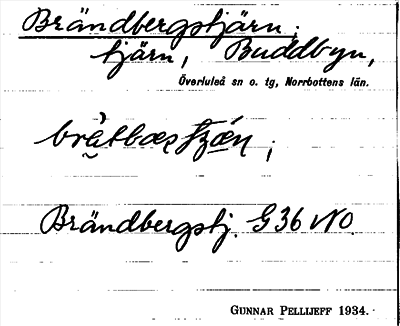 Brändbergstjärn;
tjärn, Buddbyn,
Överluleå sn o. tg, Norrbottens län.
Brändbergstj. G36 NO.
GUNNAR PELLIJEFF 1934.